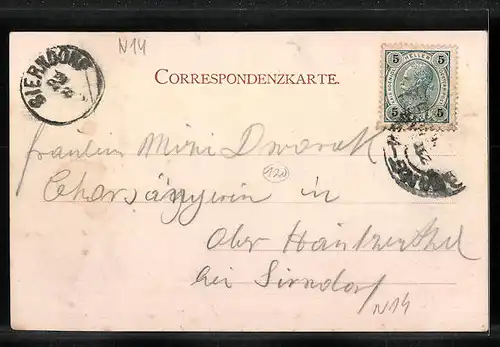 N14
SIERNDORF
CORRESPONDENZKARTE.
5 HELLER 5
5 5
Fräulein Mini Dworak
120
Chorsängerin in
Ober Hautzenthal
bei Sirndorf
N14